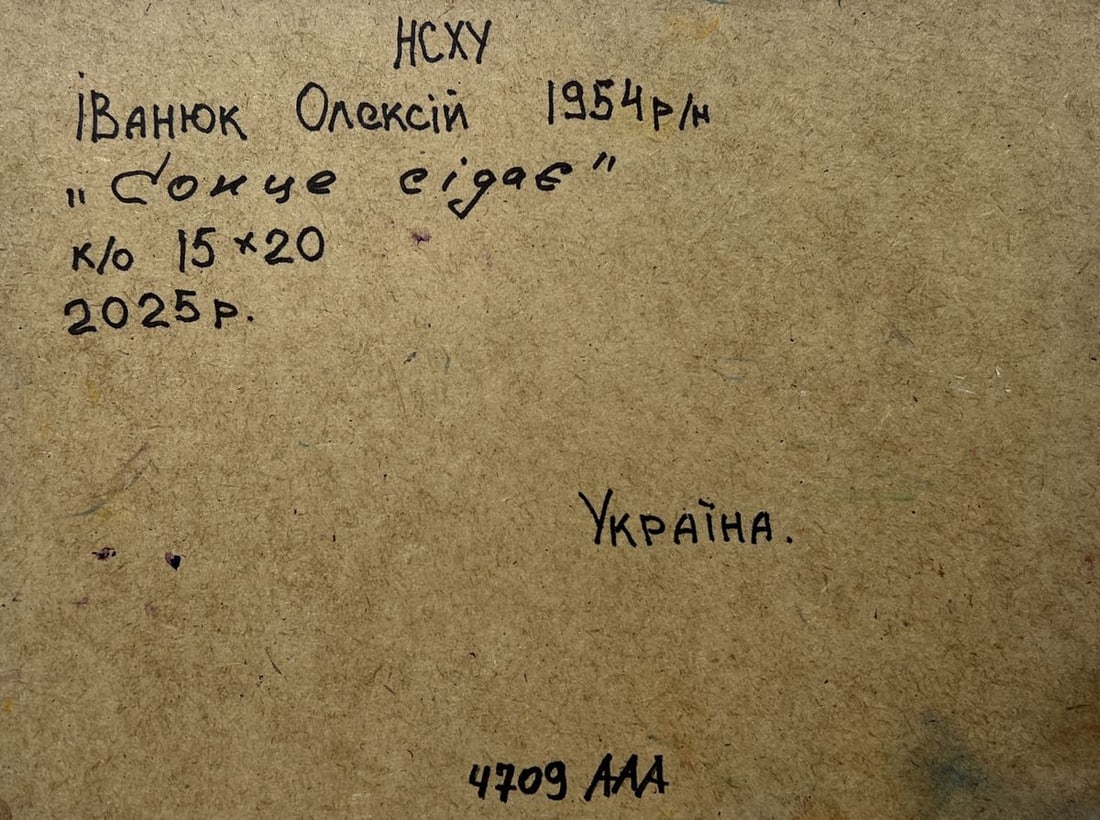 НСХУ
Іванюк Олексій 1954 р/н
„Сонце сідає"
к/о 15×20
2025р.
Україна.
4709 ААА